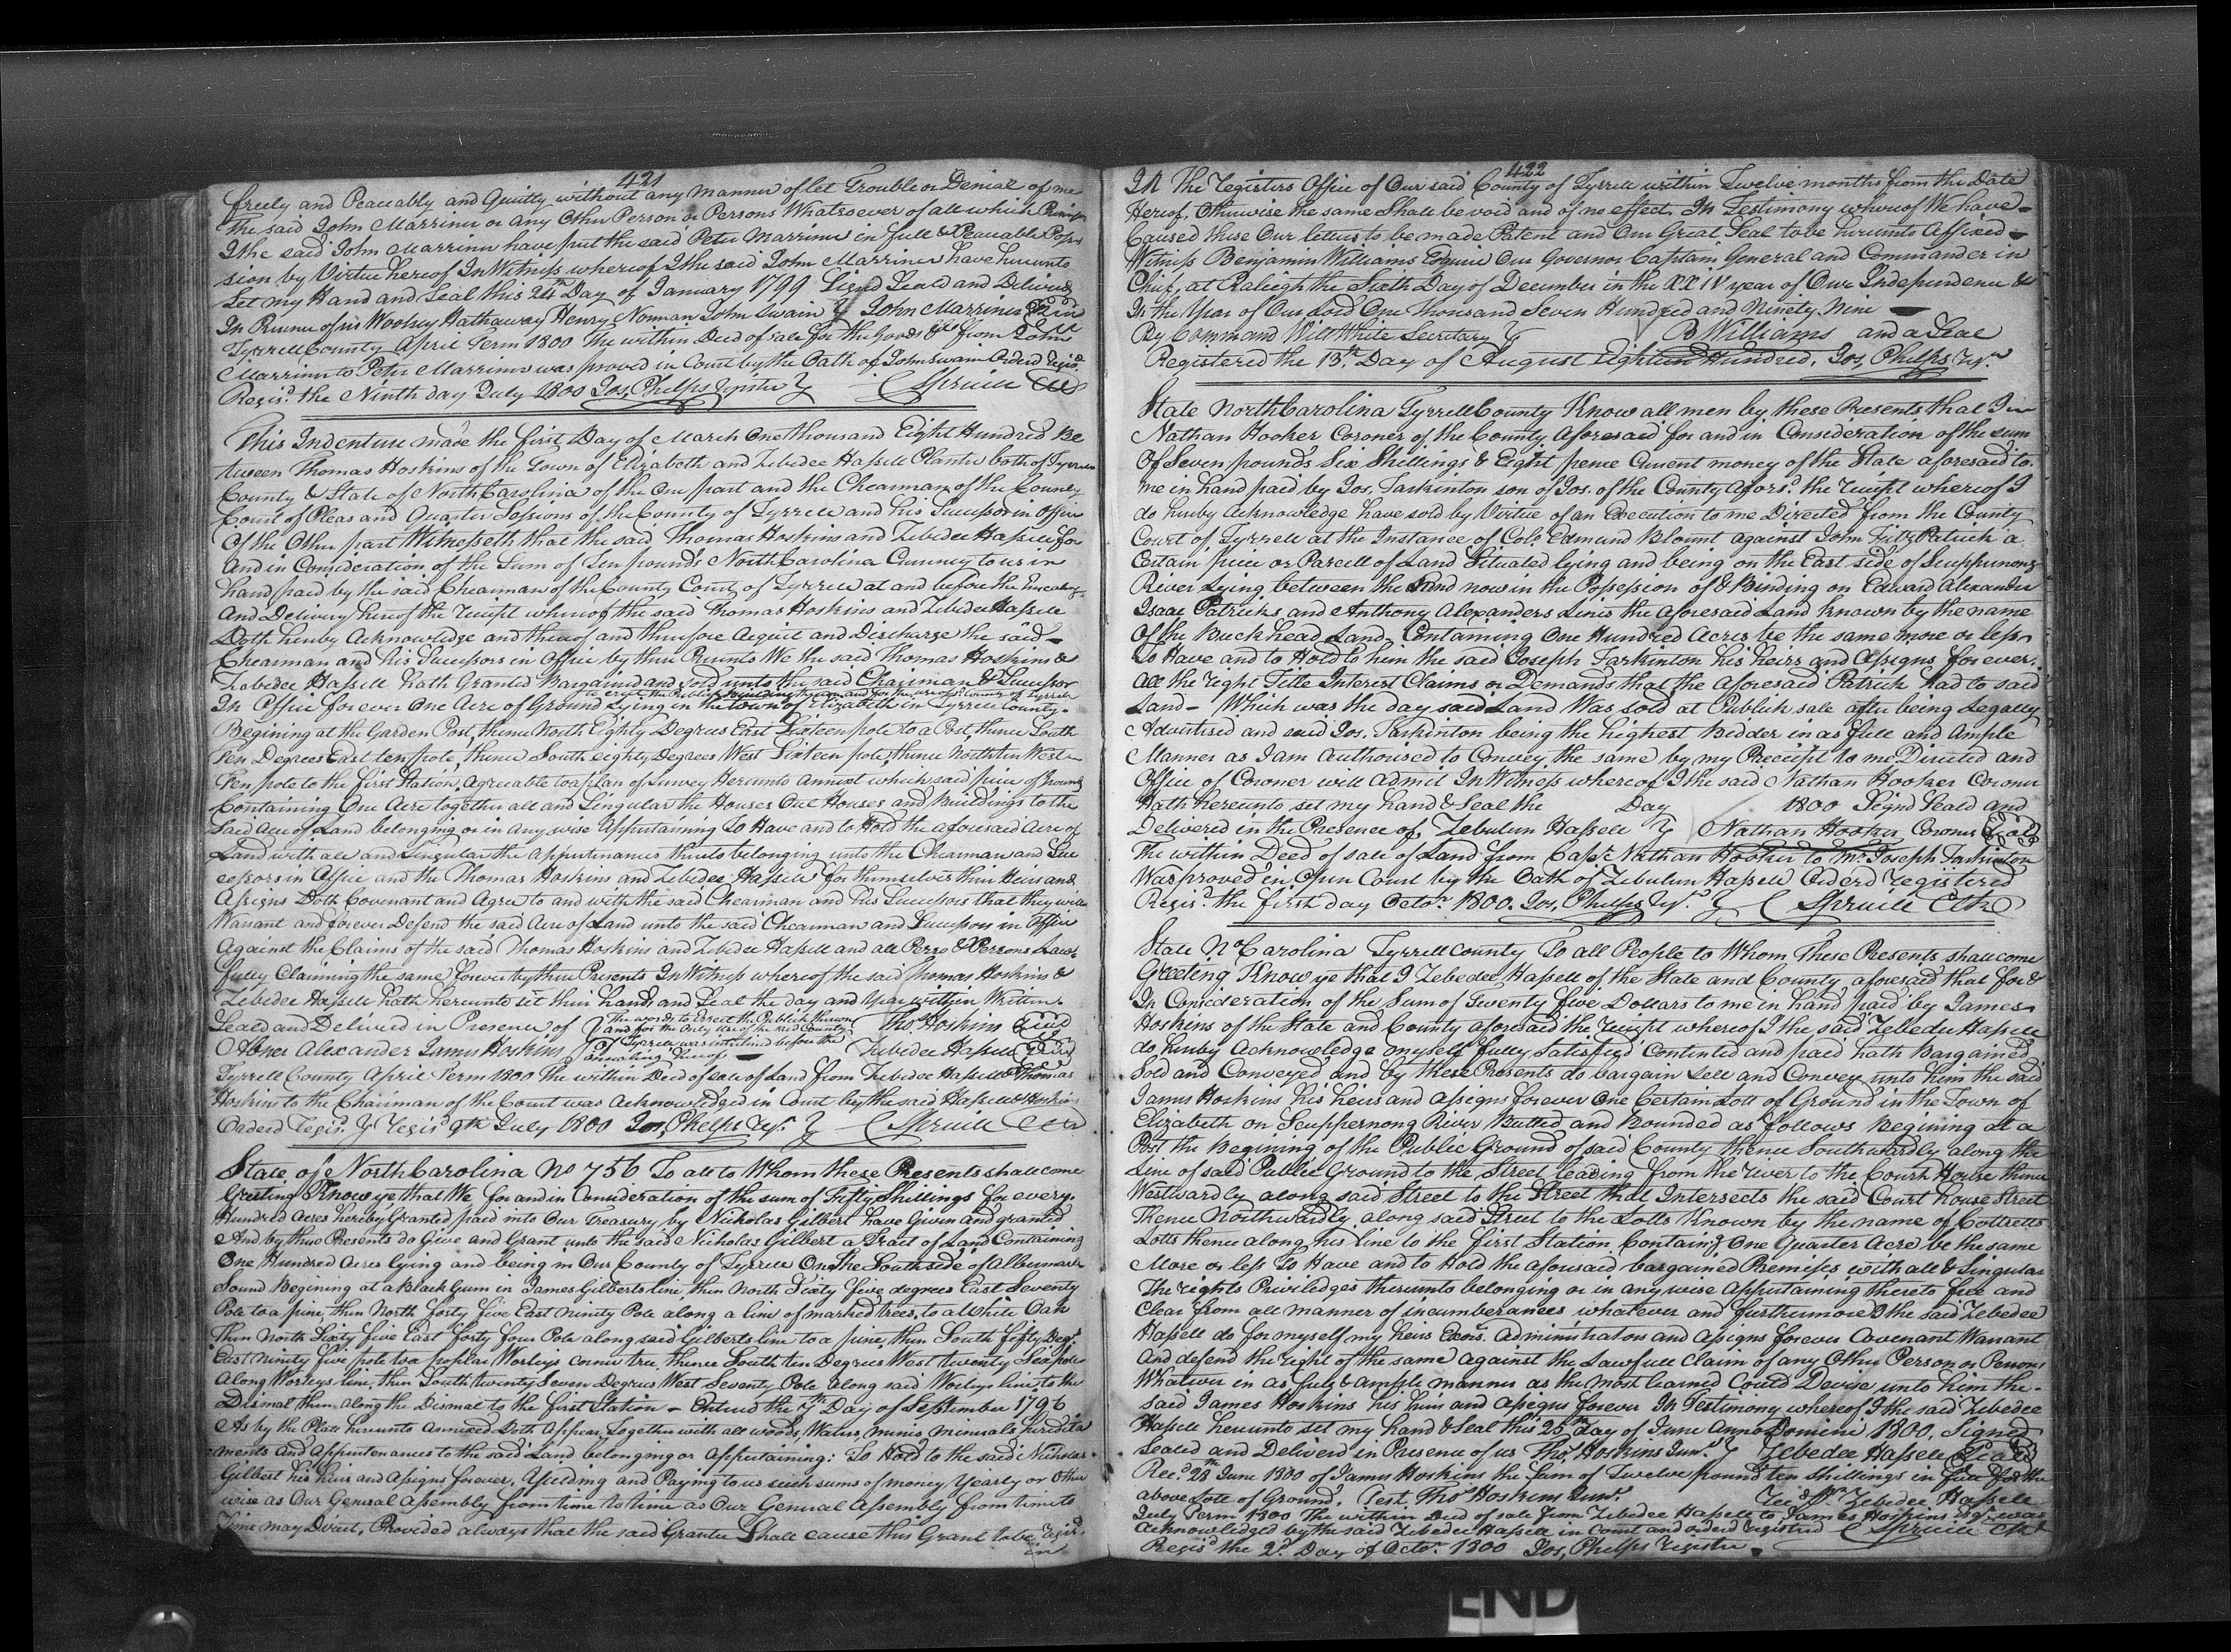 421
freely and Peaceably and Quittly without any Manner of let Trouble or Denial of me
the said John Marriner or any Other Person or Persons Whatsoever of all which
I the said John Marriner have put the said Peter Marriner in full & Peaceable Poses
sion by Virtue hereof In Witness whereof I the said John Marriner have hereunto
Set my Hand and Seal this 24th Day of January 1799 Signd Seald and Deliverd
In Presence of us Woolsey Hathaway Henry Norman John Swain } John Marriner Seal
Tyrrell County April Term 1800 The within Deed of sale for the Goods &c from John
Marriner to Peter Marriner was proved in Court by the Oath of John Swain Orderd Regisd
Regisd the Ninth day July 1800 Jos, Phelps Register } C Spruill Clk
This Indenture made the first Day of March One thousand Eight Hundred Be
tween Thomas Hoskins of the Town of Elizabeth and Zebedee Hassell Planter both of Tyrrell
County & State of North Carolina of the One part and the Chearman of the County
Court of Pleas and Quarter Sessions of the County of Tyrrell and his Successor in Office
Of the Other part Witnesseth that the said Thomas Hoskins and Zebedee Hassell for
And in Consideration of the Sum of Ten pounds North Carolina Currency to us in
hand paid by the said Chearman of the County Court of Tyrrell at and before the Ensealing
And Delivery hereof the receipt whereof the said Thomas Hoskins and Zebedee Hassell
Doth hereby Acknowledge and thereof and therefore Acquit and Discharge the said
Chearman and his Successors in Office by these Presents We the said Thomas Hoskins &
Zebedee Hassell Hath Granted Bargained and Sold unto the said Chearman & Successor
to erect the Publick building thereon and for the use of sd County of Tyrrell
In Office forever One Acre of Ground Lying in the Town of Elizabeth in Tyrrell County
Begining at the Garden Post, thence North Eighty Degrees East Sixteen pole to a Post, thence South
Ten Degrees East ten pole, thence South eighty Degrees West Sixteen pole, thence North ten West
Ten pole to the first Station, Agreeable to a plan of Survey Hereunto Annext which said piece of Ground
Containing One Acre together all and Singular the Houses Out Houses and Buildings to the
Said Acre of Land belonging or in any wise Appertaining To Have and to Hold the aforesaid Acre of
Land with all and Singular the Appurtenances thereto belonging unto the Chearman and Suc
cessors in Office and the Thomas Hoskins and Zebedee Hassell for themselves their Heirs and
Assigns Doth Covenant and Agree to and with the said Chearman and His Successors that they will
Warrant and forever Defend the said Acre of Land unto the said Chearman and Successors in Office
Against the Claims of the said Thomas Hoskins and Zebedee Hassell and all Perso & Persons Law
fully Claiming the same forever by these Presents In Witness whereof the said Thomas Hoskins &
Zebedee Hassell hath hereunto set their hands and Seal the day and Year within Written
Seald and Deliverd in Presence of } The words to Erect the Publick thereon Tho Hoskins Seal
and for the Only Use of the said County
Abner Alexander James Hoskins } of Tyrrell was interlined before the Zebedee Hassell Seal
ensealing hereof
Tyrrell County April Term 1800 The within Deed of sale of Land from Zebedee Hassell & Thomas
Hoskins to the Chairman of the Court was Acknowledged in Court by the said Hassell & Hoskins
Orderd Regisd } Regisd 9th July 1800 Jos, Phelps Regr } C Spruill Clk
State of North Carolina No 756 To all to Whom these Presents shall come
Greeting Know ye that We for and in Consideration of the sum of Fifty Shillings for every
Hundred Acres hereby Granted paid into Our Treasury by Nicholas Gilbert have Given and granted
And by these Presents do Give and Grant unto the said Nicholas Gilbert a Tract of Land Containing
One Hundred Acres lying and being in Our County of Tyrrell On the South side of Albemarle
Sound Begining at a Black Gum in James Gilberts line, then North Sixty five degrees East Seventy
Pole to a pine, then North forty five East Ninety Pole along a line of marked trees, to a White Oak
Then North Sixty five East forty four Pole along said Gilberts line to a pine, then South fifty Degs
East Ninety five pole to a poplar Worleys corner tree, thence South ten Degrees West twenty Six pole
Along Worleys line, then South twenty Seven Degrees West Seventy Pole along said Worleys line to the
Dismal then along the Dismal to the first Station - Enterd the 7th Day of September 1796
As by the Platt hereunto Annexed Doth Appear, Together with all woods, Waters, mines, Minerals, heredita
ments and Appurtenances to the said Land belonging or Appertaining: To Hold to the said Nicholas
Gilbert his heirs and Assigns forever, Yielding and Paying to us such sums of money Yearly or Other
wise as Our General Assembly from time to time as Our General Assembly from time to
Time may Direct, Provided always that the said Grantee Shall cause this Grant to be Registd
in
422
In The Registers Office of Our said County of Tyrrell within Twelve months from the Date
Hereof, Otherwise the same Shall be void and of no effect. In Testimony whereof We have
Caused these Our letters to be made Patent and Our Great Seal to be hereunto Affixed
Witness Benjamin Williams Esquire Our Governor Captain General and Commander in
Chief, at Raleigh the Sixth Day of December in the XXIV year of Our Independence &
In the Year of Our Lord One Thousand Seven Hundred and Ninety Nine
By Command Will White Secretary } B Williams and a Seal
Registered the 13th Day of August Eighteen Hundred, Jos, Phelps Regr
State North Carolina Tyrrell County Know all men by these Presents that I
Nathan Hooker Coroner of the County Aforesaid for and in Consideration of the sum
Of Seven pounds Six Shillings & Eight pence Current money of the State aforesaid to
me in hand paid by Jos. Tarkinton son of Jos. of the County Aforsd the receipt whereof I
do hereby Acknowledge have sold by Virtue of an Execution to me Directed from the County
Court of Tyrrell at the Instance of Colo Edmund Blount against John Fitz Patrick a
Certain piece or Parcell of Land Situated lying and being on the East side of Scuppernong
River Lying between the Land now in the Possession of & Binding on Edward Alexander
Isaac Patricks and Anthony Alexanders Lines the aforesaid Land known by the name
Of the Buck head Land, Containing One Hundred Acres be the same more or less
To Have and to Hold to him the said Joseph Tarkinton his heirs and Assigns forever.
All the right Title Interest Claims or Demands that the aforesaid Patrick had to said
Land - Which was the day said Land Was sold at Publick sale after being Legally
Advertised and said Jos. Tarkinton being the highest Bidder in as full and Ample
Manner as I am Authorised to Convey the same by my Preceipt to me Directed and
Office of Coroner will admit In Witness whereof I the said Nathan Hooker Coroner
Hath hereunto set my hand & Seal the Day 1800 Signd Seald and
Delivered in the Presence of, Zebulun Hassell } Nathan Hooker Coroner Seal
The within Deed of sale of Land from Capt Nathan Hooker to Mr Joseph Tarkinton
Was proved in Open Court by the Oath of Zebulun Hassell Orderd registered
Regisd the first day Octor 1800. Jos, Phelps Regr } C Spruill Clk
State No Carolina Tyrrell County To all People to Whom These Presents shall come
Greeting Know ye that I Zebedee Hassell of the State and County aforesaid that for &
In Consideration of the Sum of Twenty five Dollars to me in hand paid by James
Hoskins of the State and County aforesaid the receipt whereof I the said Zebedee Hassell
do hereby Acknowledge myself fully Satisfied Contented and paid hath Bargained
Sold and Conveyed and by these Presents do bargain Sell and Convey unto him the said
James Hoskins his heirs and Assigns forever One Certain Lott of Ground in the Town of
Elizabeth on Scuppernong River Butted and Bounded as follows Begining at a
Post the Begining of the Public Ground of said County thence Southwardly along the
Line of said Public Ground to the Street leading from the river to the Court House thence
Westwardly along said Street to the Street that Intersects the said Court house Street
Thence Northwardly along said Street to the Lotts Known by the name of Cottretts
Lotts thence along his line to the first Station Containg One Quarter Acre be the same
More or less To Have and to Hold the aforesaid bargained Premises with all & Singular
The rights Priviledges thereunto belonging or in any wise Appertaining thereto free and
Clear from all manner of incumberances whatever and furthermore I the said Zebedee
Hassell do for myself my heirs Exors. Administrators and Assigns forever Covenant Warrant
And defend the right of the same against the Lawfull Claim of any Other Person or Persons
Whatever in as full & ample manner as the most learned Could Devise unto him the
said James Hoskins his heirs and assigns forever In Testimony whereof I the said Zebedee
Hassell hereunto set my hand & Seal this 25th day of June Anno Domini 1800. Signed
Sealed and Deliverd in Presence of us Tho, Hoskins Junr. } Zebedee Hassell Seal
Recd 28th June 1800 of James Hoskins the Sum of Twelve pound ten Shillings in full for the
above Lott of Ground, Test, Tho Hoskins Junr. Zebedee Hassell
July Term 1800 The within Deed of sale from Zebedee Hassell to James Hoskins Esqr was
Acknowledged by the said Zebedee Hassell in Court and orderd registred C Spruill Clk
Regisd the 2d Day of Octor 1800 Jos, Phelps Register
END